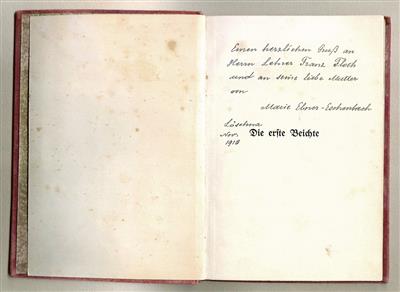 Einen herzlichen Gruß an
Herrn Lehrer Franz Floth
und an seine liebe Mutter
von
Marie Ebner-Eschenbach
Nov.
1910
Die erste Beichte